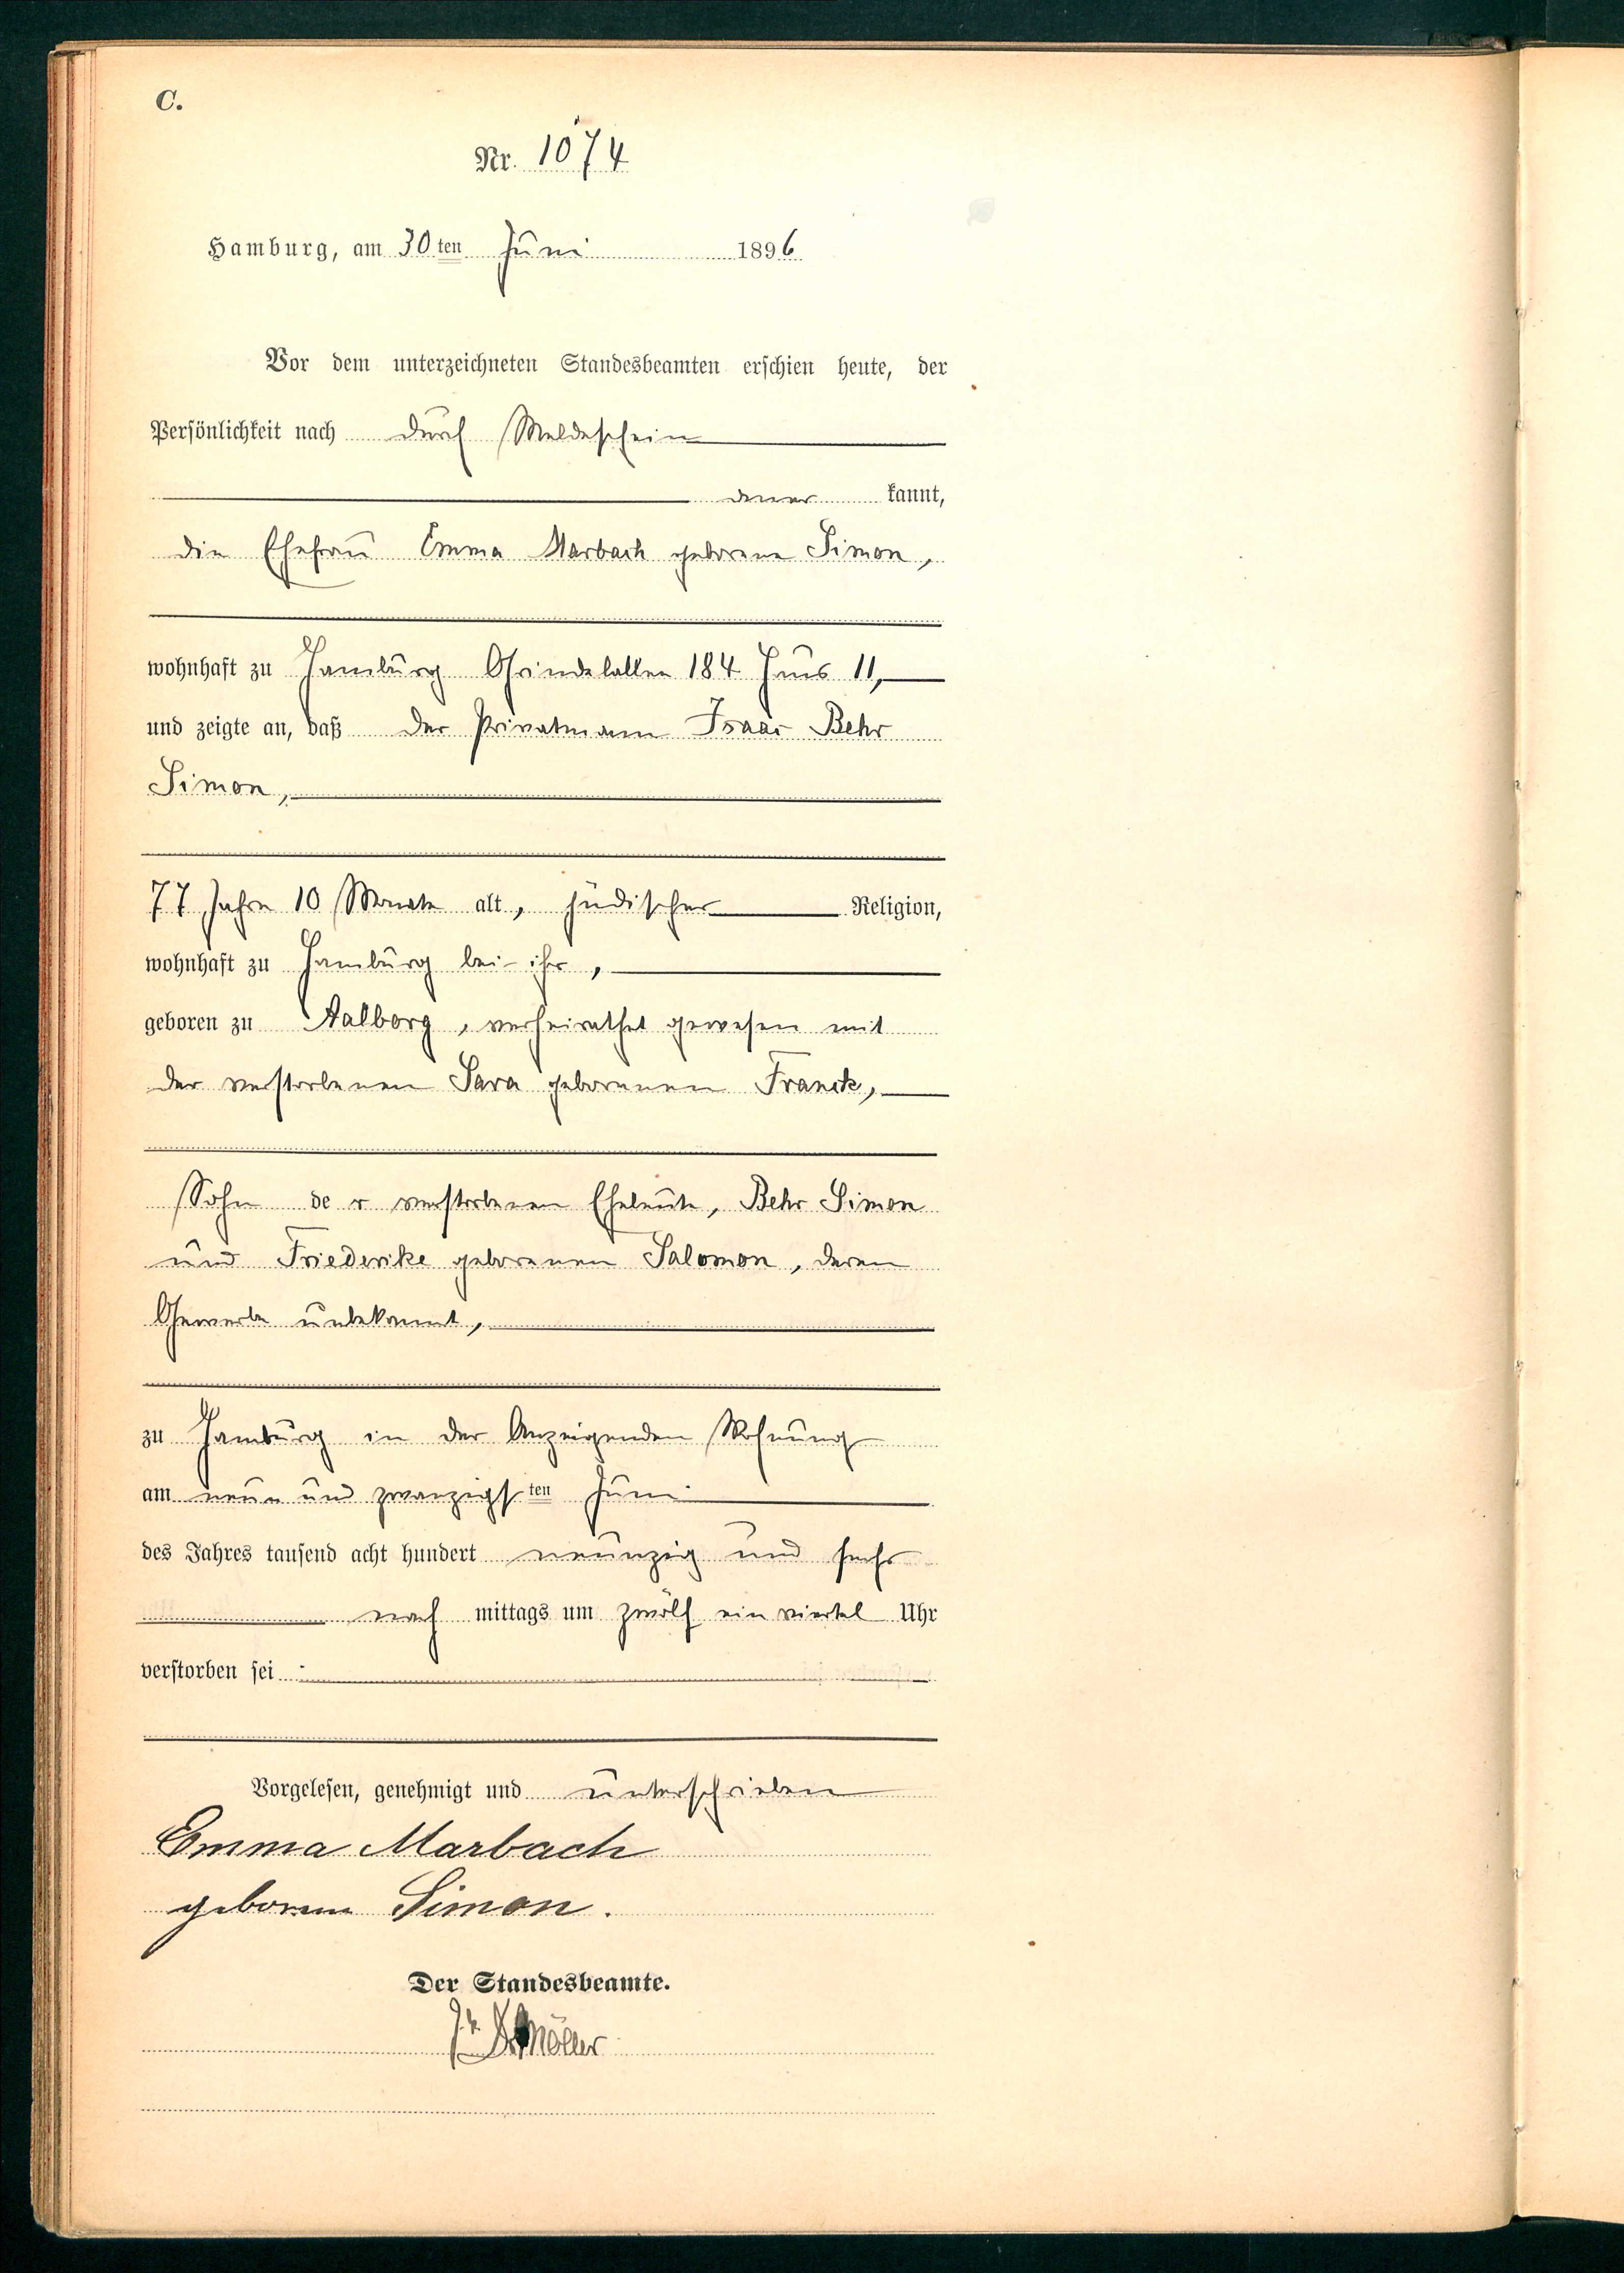 C.
Nr. 1074
Hamburg, am 30ten Juni 1896
Vor dem unterzeichneten Standesbeamten erschien heute, der
Persönlichkeit nach durch Meldeschein
kannt,
die Ehefrau Emma Marbach geborene Simon,
wohnhaft zu Hamburg Grindelallee 184 Haus 11,
und zeigte an, daß der Privatmann Isaac Behr
Simon,
77 Jahre 10 Monate alt, jüdischer Religion,
wohnhaft zu Hamburg bei ihr,
geboren zu Aalborg, verheirathet gewesen mit
der verstorbenen Sara geborenen Franck,
Sohn der verstorbenen Eheleute, Behr Simon
und Friederike geborenen Salomon, deren
Gewerbe unbekannt,
zu Hamburg in der Anzeigenden Wohnung
am neun und zwanzigsten Juni
des Jahres tausend acht hundert neunzig und sechs
nach mittags um zwölf ein viertel Uhr
verstorben sei.
Vorgelesen, genehmigt und unterschrieben
Emma Marbach
geborene Simon.
Der Standesbeamte.
Möller